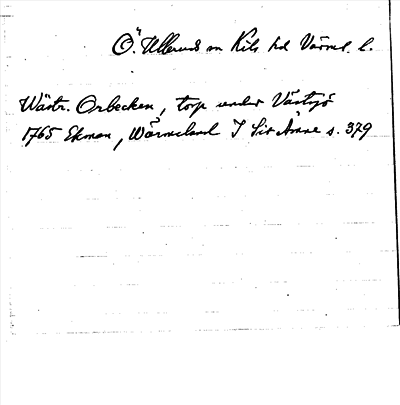 Ö. Ullerud sn Kils hd Värml. l.
Wästr. Orbecken, torp under Västsjö
1765 Ekman, Wärmeland I Sit Ämne s. 379